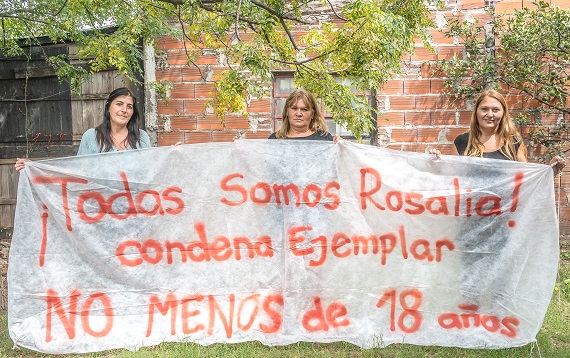 ¡Todas Somos Rosalia!
condena Ejemplar
NO MENOS de 18 años